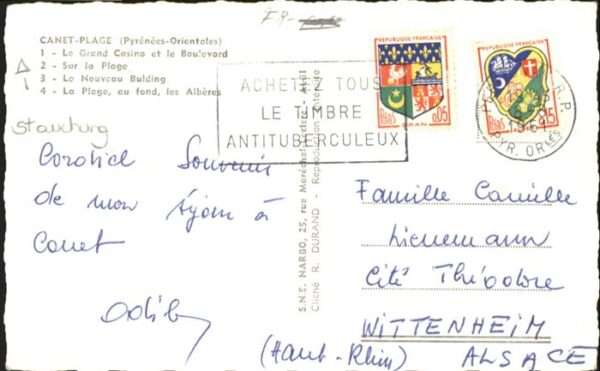 FP-
CANET-PLAGE (Pyrénées-Orientales)
1 - Le Grand Casino et le Boulevard
2 - Sur la Plage
3 - Le Nouveau Bulding
4 - La Plage, au fond, les Albères
REPUBLIQUE FRANÇAISE
POSTES ORAN 0,05
REPUBLIQUE FRANÇAISE
POSTES 0,15
ACHETEZ TOUS
LE TIMBRE
ANTITUBERCULEUX
PYR. ORles
Cordial Souvenir
de mon séjour à
Canet
S.N.E. NARBO, 25, rue Maréchal
Cliché R. DURAND - Reproduction interdite
Famille Camille
Lienemann
Cité Théodore
WITTENHEIM
(Haut-Rhin) ALSACE